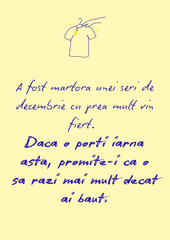 A fost martora unei seri de
decembrie cu prea mult vin
fiert.
Daca o porti iarna
asta, promite-i ca o
sa razi mai mult decat
ai baut.